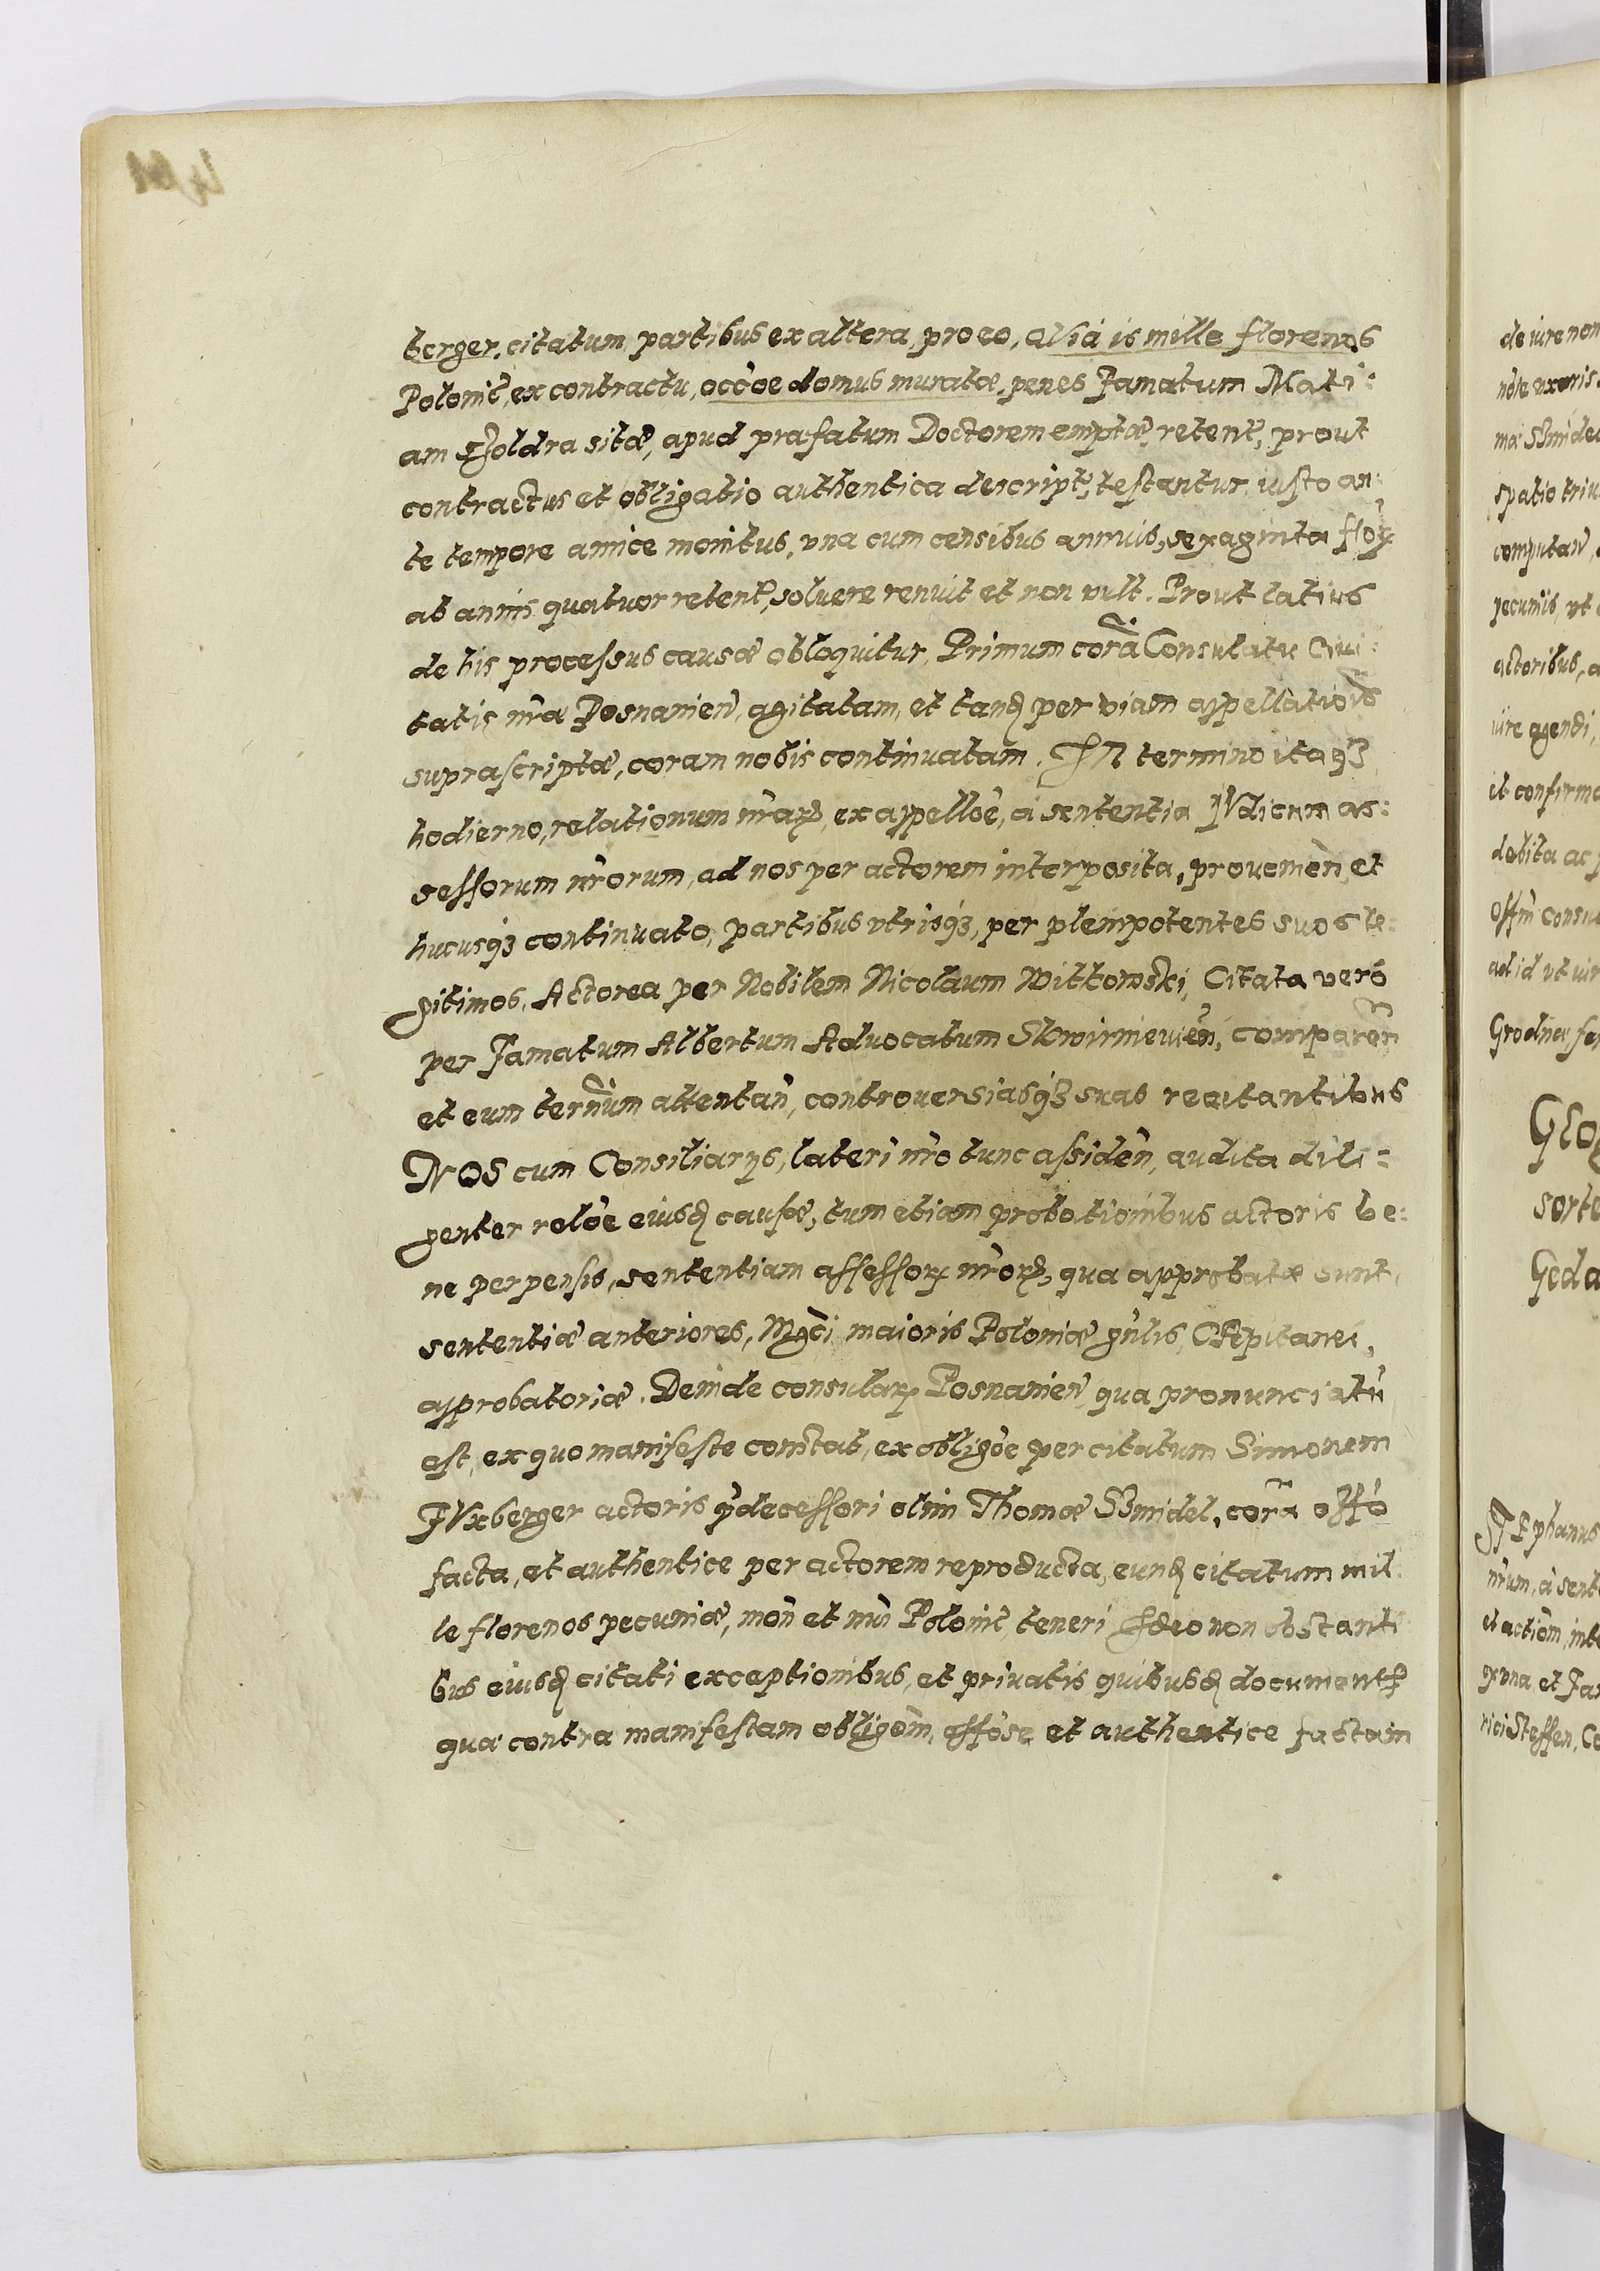 berger, citatum partibus ex altera, pro eo, quia is mille florenos
Polonic̃, ex contractu, occõe domus muratæ, penes Famatum Mati:
am Holdra sitæ, apud præfatum Doctorem emptæ, retent, prout
contractus et obligatio authentica descript, testantur, iusto an:
te tempore amice monitus, vna cum censibus annuis, sexaginta floꝝ
ab annis quatuor retent, soluere renuit et non vult. Prout latius
de his processus causæ obloquitur, Primum corã Consulatu Ciui:
tatis nr̃æ Posnanien̄, agitatam, et tandẽ per viam appellationis
suprascriptæ, coram nobis continuatam. In termino itaqꝫ
hodierno, relationum nr̃arꝫ, ex appellõe, a sententia Iudicum as:
sessorum nr̃orum, ad nos per actorem interposita, prouenien̄, et
hucusqꝫ continuato, partibus vtrisqꝫ, per plenipotentes suos le:
gitimos, Actorea per Nobilem Nicolaum Witkowski, Citata vero
per Famatum Albertum Aduocatum Skwirnieuien̄, comparen̄
et eum tern̄um attentan̄, controuersiasqꝫ suas recitantibus
NOS cum Consiliarijs, lateri nr̃o tunc assiden̄, audita dili:
genter relõe eiusdẽ causæ, tum etiam probationibus actoris be:
ne perpensis, sententiam assessoꝝ nr̃orꝫ, qua approbatæ sunt,
sententiæ anteriores, Mgc̃i maioris Poloniæ gn̄lis, CApitanei,
approbatoriæ. Deinde consulaꝝ Posnanien̄, qua pronunciatũ
est, ex quo manifeste constat, ex obligõe per citatum Simonem
IVxberger actoris p̃decessori olim Thomæ SSmidel, corã offõ
facta, et authentice per actorem reproducta, eundẽ citatum mil:
le florenos pecuniæ, mon̄ et nũi Polonic̃, teneri Ideo non obstanti
bus eiusdẽ citati exceptionibus, et priuatis quibusdẽ document
qua contra manifestam obligõm, offõse et authentice factam
de iure non
mille
actoribus, a
iure agendi,
et confirma
debita ac
ad id vt
Grodnæ,
Glog
sorte
Geda
STEphanus